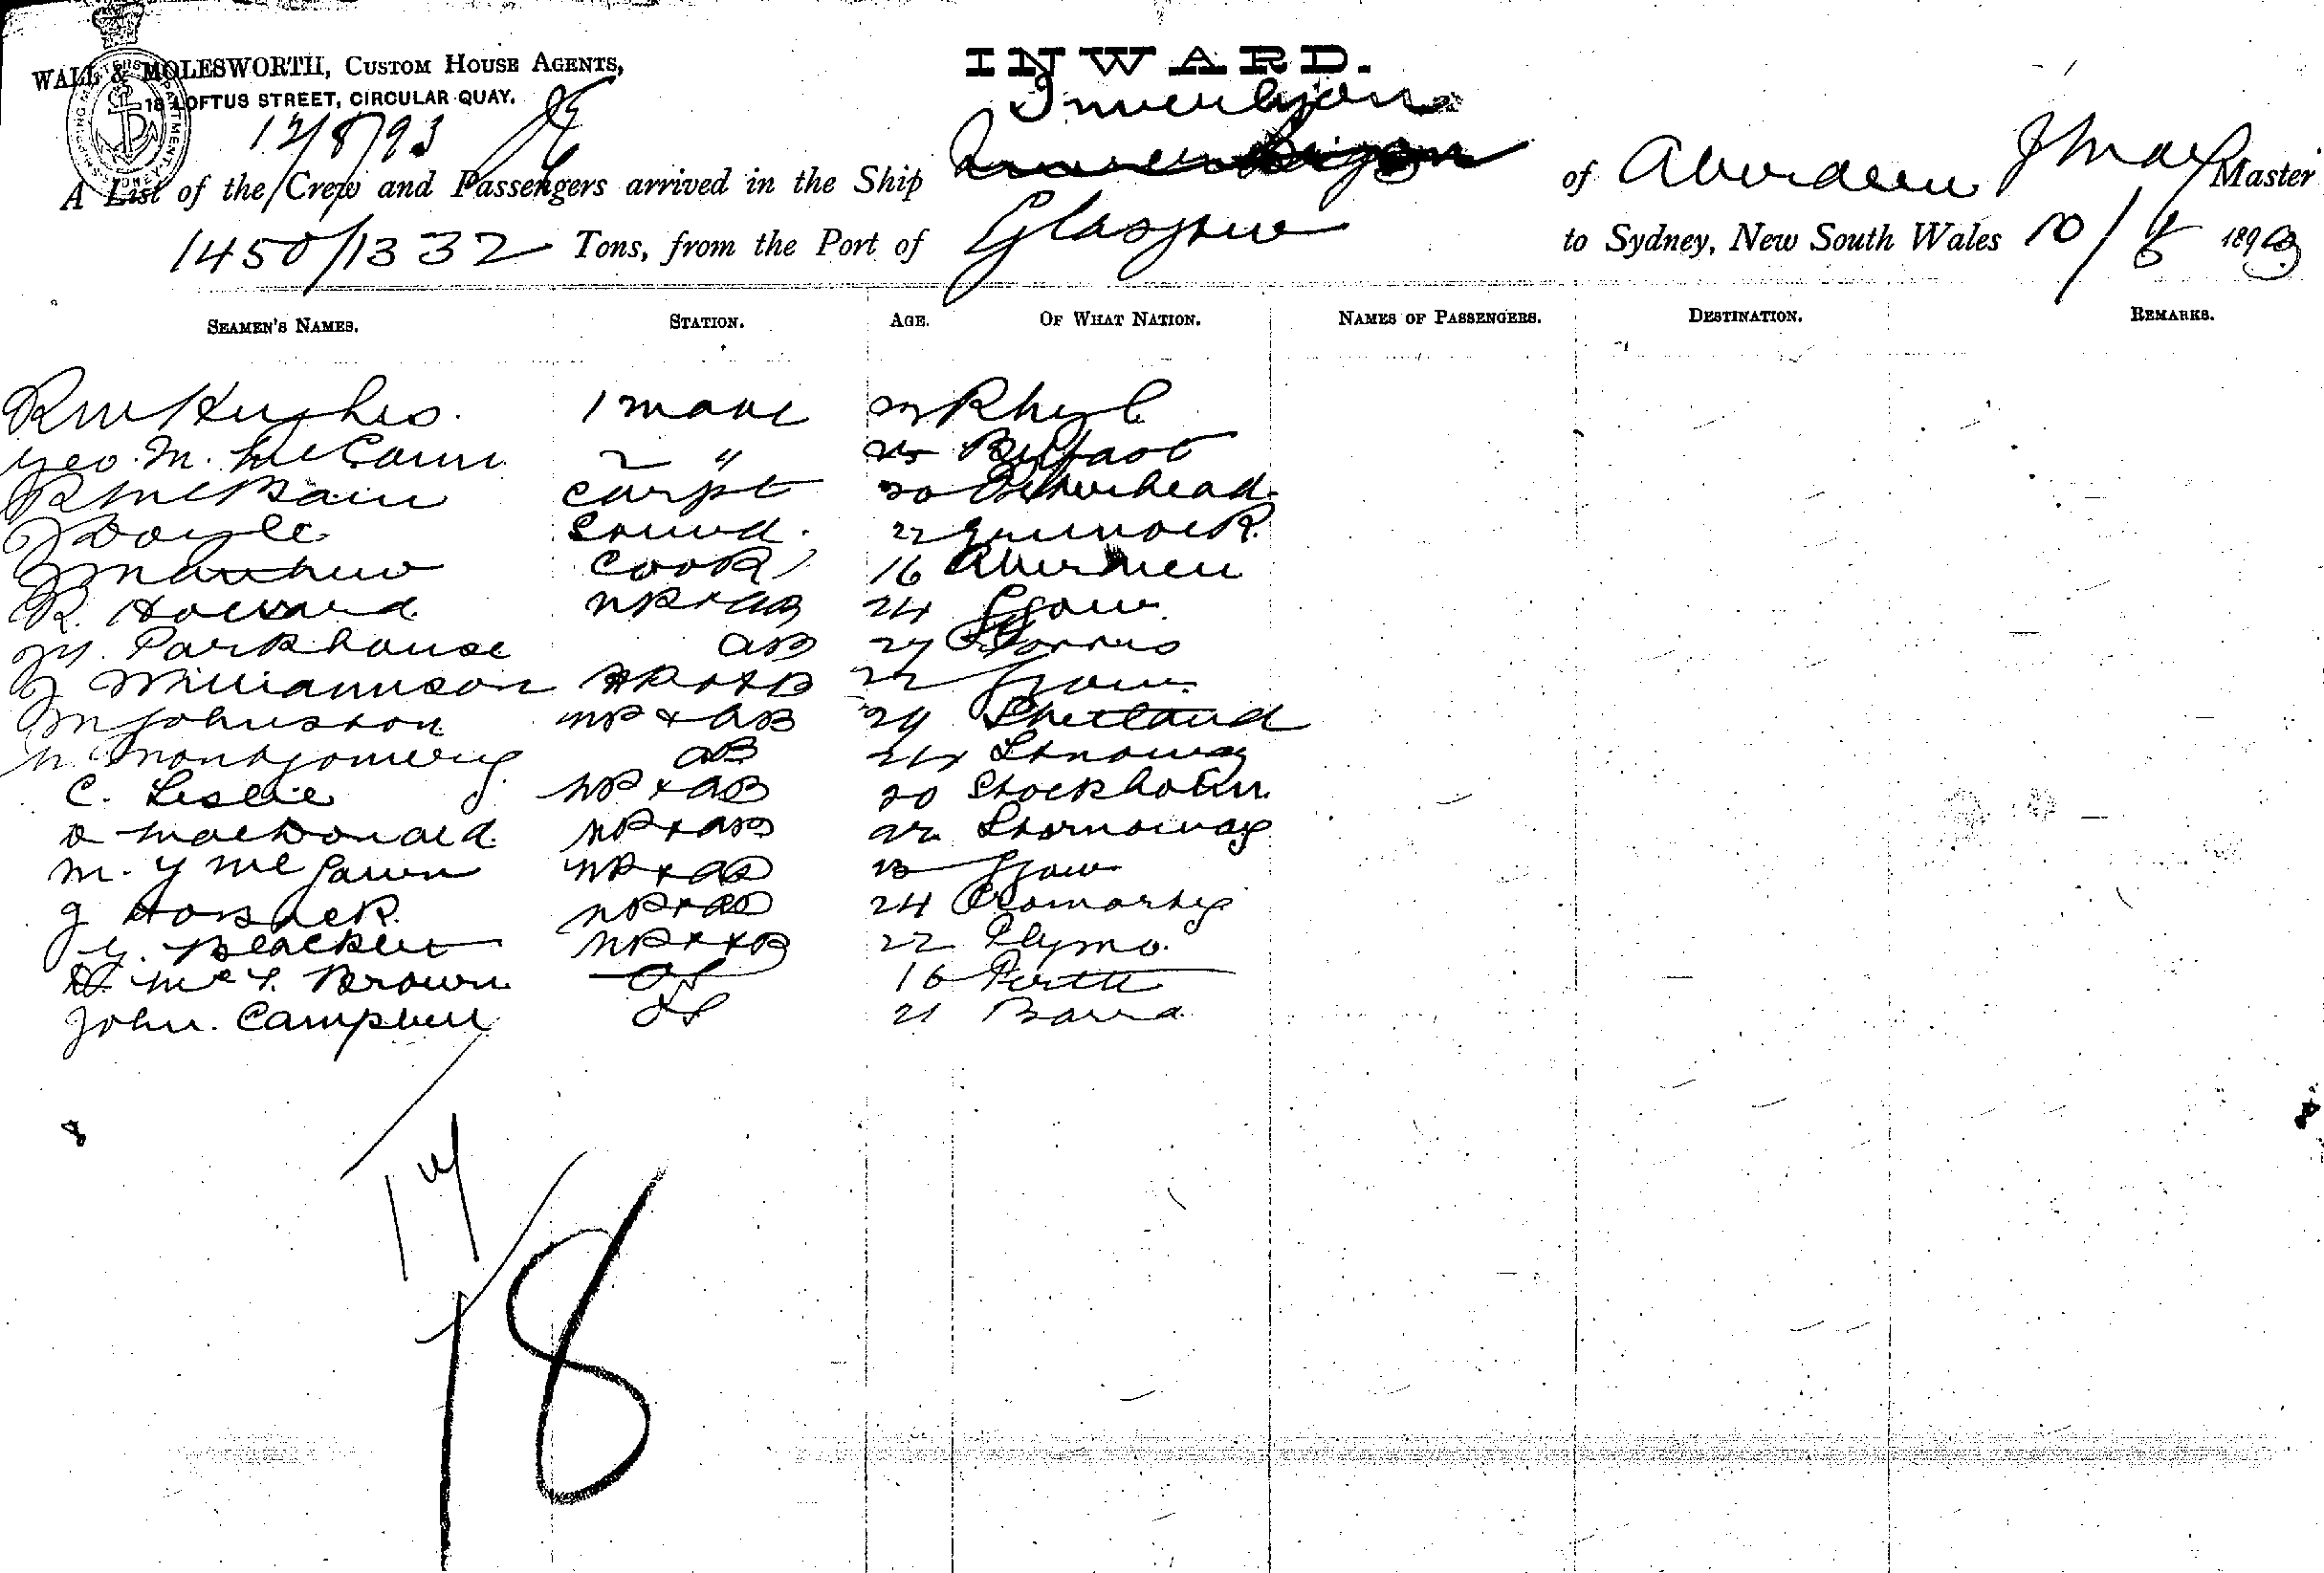 INWARD.
WALL & MOLESWORTH, CUSTOM HOUSE AGENTS,
18 LOFTUS STREET, CIRCULAR QUAY.
12/8/93
A List of the Crew and Passengers arrived in the Ship of Aberdeen Master
1450/1332 Tons, from the Port of Glasgow to Sydney, New South Wales 10/8 1893
SEAMEN'S NAMES. STATION. AGE. OF WHAT NATION. NAMES OF PASSENGERS. DESTINATION. REMARKS.
R W Hughes. 1 mate Rhyl
Geo. M. McCann 2 " 25 Belfast
R McBain carpt 20 Peterhead
J Doyle Stewd. 22 Greenock
J Matthew Cook 16 Aberdeen
R. Howard 24 Ggow
Parkhouse AB 27
J Williamson 22 Ggow
M Johnston AB 29 Shetland
N Montgomery AB 24
C. Leslie AB 20 Stockholm
D MacDonald 22 Stornoway
M. Y McGawn 23 Ggow
J 24 Cromarty
Blackler 22 Plymo.
D. McF. Brown OS 16 Perth
John. Campbell OS 21 Barra
17
18